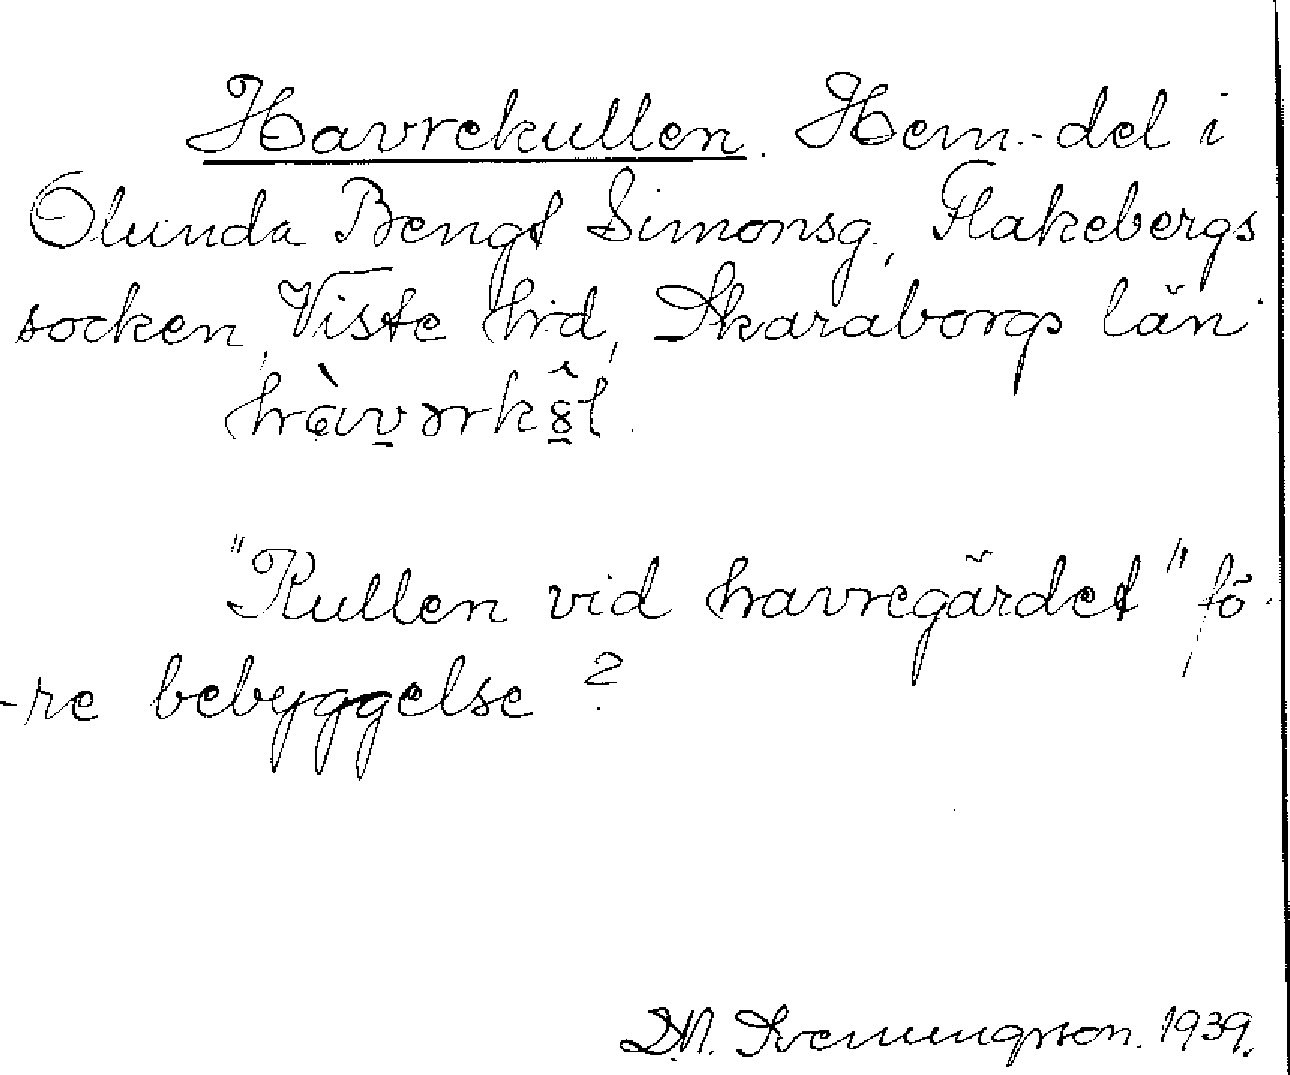 Havrekullen. Hem.-del i
Olunda Bengt Simonsg., Flakebergs
socken, Viste hrd, Skaraborgs län
"Kullen vid havregärdet" fö-
-re bebyggelse?
D.N. Svenungsson. 1939.